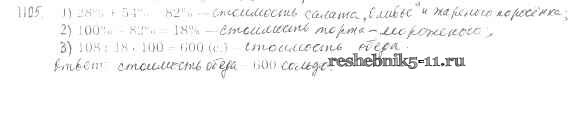 1105. 1) 28% + 54% = 82% – стоимость салата „Оливье" и жареного поросёнка;
2) 100% - 82% = 18% – стоимость торта-мороженого;
3) 108 : 18 · 100 = 600 (с.) – стоимость обеда.
Ответ: стоимость обеда - 600 сольдо.
reshebnik5-11.ru